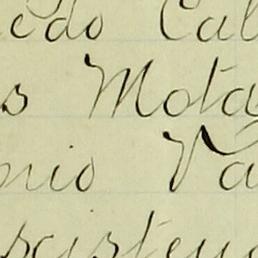 edo Cal
s Mota
nio Va
scisten